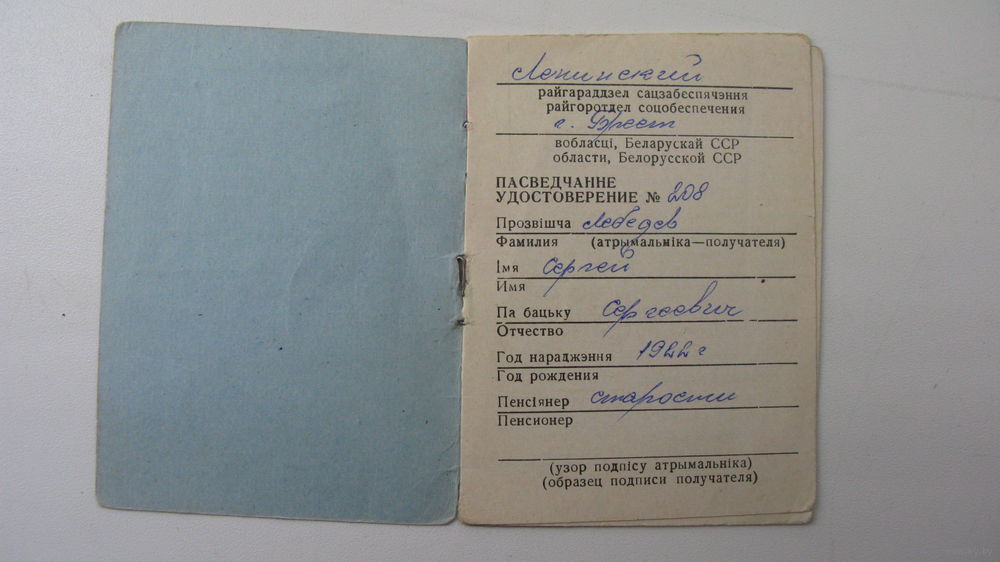 Ленинский
райгараддзел сацзабеспячэння
райгоротдел соцобеспечения
г. Брест
вобласці, Беларускай ССР
области, Белорусской ССР
ПАСВЕДЧАННЕ
УДОСТОВЕРЕНИЕ № 208
Прозвішча Лебедев
Фамилия (атрымальніка—получателя)
Імя Сергей
Имя
Па бацьку Сергеевич
Отчество
Год нараджэння 1922 г
Год рождения
Пенсіянер старости
Пенсионер
(узор подпісу атрымальніка)
(образец подписи получателя)